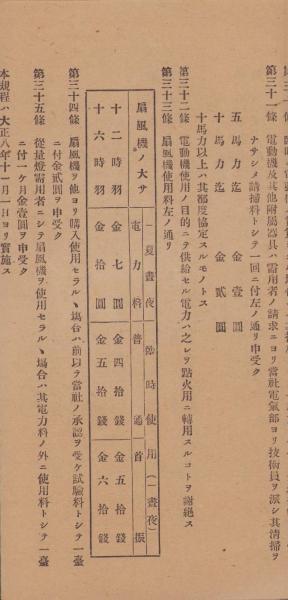 第三十一條　電動機及其他附屬器具ハ需用者ノ請求ニヨリ當社電氣部ヨリ技術員ヲ派シ其清掃ヲ
ナサシメ請掃料トシテ一回ニ付左ノ通リ申受ク
五馬力迄　金壹圓
十馬力迄　金貳圓
十馬力以上ハ其都度協定スルモノトス
第三十二條　電動機使用ノ目的ニテ供給セル電力ハ之レヲ點火用ニ轉用スルコトヲ謝絶ス
第三十三條　扇風機使用料左ノ通リ
扇風機ノ大サ　一夏晝夜　臨時使用（一晝夜）
電力料　普通　首振
十二時羽　金七圓　金四拾錢　金五拾錢
十六時羽　金拾圓　金五拾錢　金六拾錢
第三十四條　扇風機ヲ他ヨリ購入使用セラルヽ場合ハ前以テ當社ノ承認ヲ受ケ試驗料トシテ一臺
ニ付金貳圓ヲ申受ク
第三十五條　從量燈需用者ニシテ扇風機ヲ使用セラルヽ場合ハ其電力料ノ外ニ使用料トシテ一臺
ニ付一ケ月金壹圓ヲ申受ク
本規程ハ大正八年十一月一日ヨリ實施ス